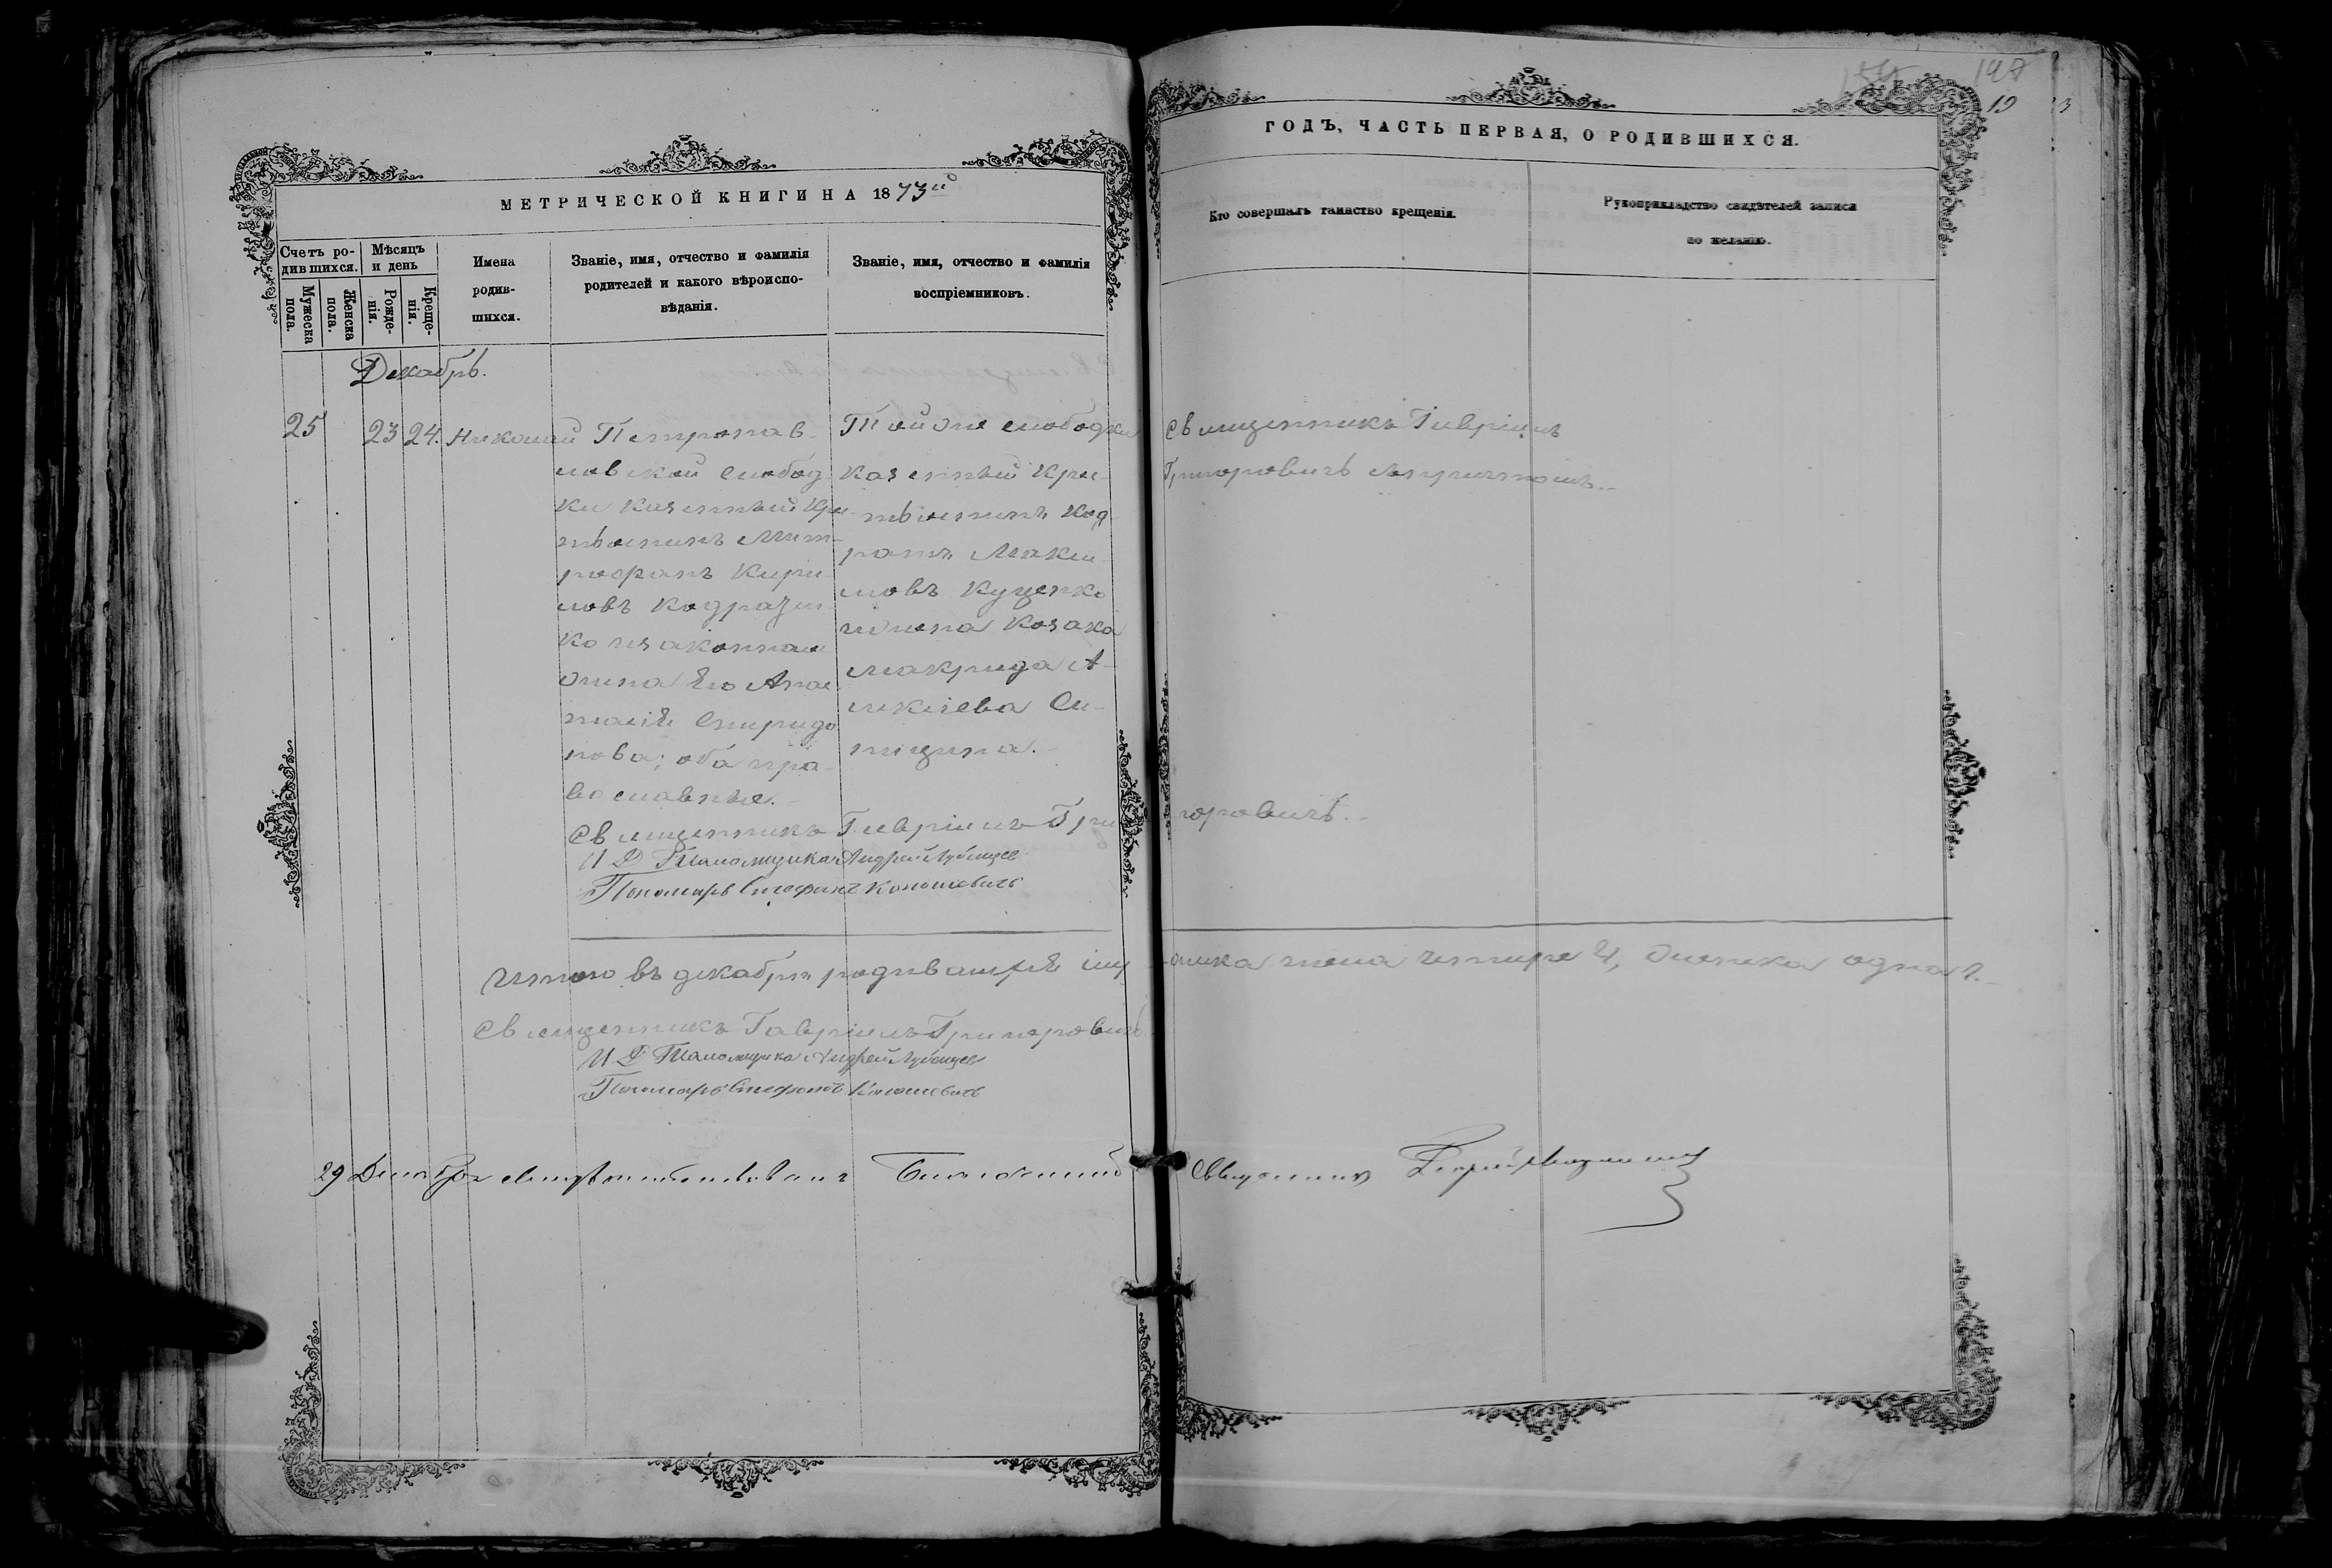 147
19
МЕТРИЧЕСКОЙ КНИГИ НА 1873й
ГОДЪ, ЧАСТЬ ПЕРВАЯ, О РОДИВШИХСЯ.
Счетъ ро-
дившихся.
Мужеска
пола.
Женска
пола.
Мѣсяцъ
и день
Рожде-
нія.
Креще-
нія.
Имена
родив-
шихся.
Званіе, имя, отчество и фамилія
родителей и какого вѣроиспо-
вѣданія.
Званіе, имя, отчество и фамилія
воспріемниковъ.
Кто совершалъ таинство крещенія.
Рукоприкладство свидѣтелей записи
по желанію.
Декабрь.
25 23 24. Николай
Петропав-
ловской слобод-
ки казенный кре-
стьянинъ Мит-
рофанъ Кирил-
ловъ
законная
жена его Анас-
тасія Спиридо-
нова; оба пра-
вославные.
Той же слободки
казенный кре-
стьянинъ Код-
ратъ Макси-
мовъ Куценко
и жена козака
Макрида А-
лексіева Си-
ницина.
Священникъ Гавріилъ
Григоровичъ съ причтомъ.
Священникъ Гавріилъ Григоровичъ.
И Д Псаломщика Андрей
Пономарь Стефанъ
Итого въ декабрѣ родившихся муж-
еска пола четыре 4, женска одна 1.
Священникъ Гавріилъ Григоровичъ
И Д Псаломщика Андрей
Пономарь Стефанъ
29 Декабря свидѣтельствовалъ Благочинный Священникъ